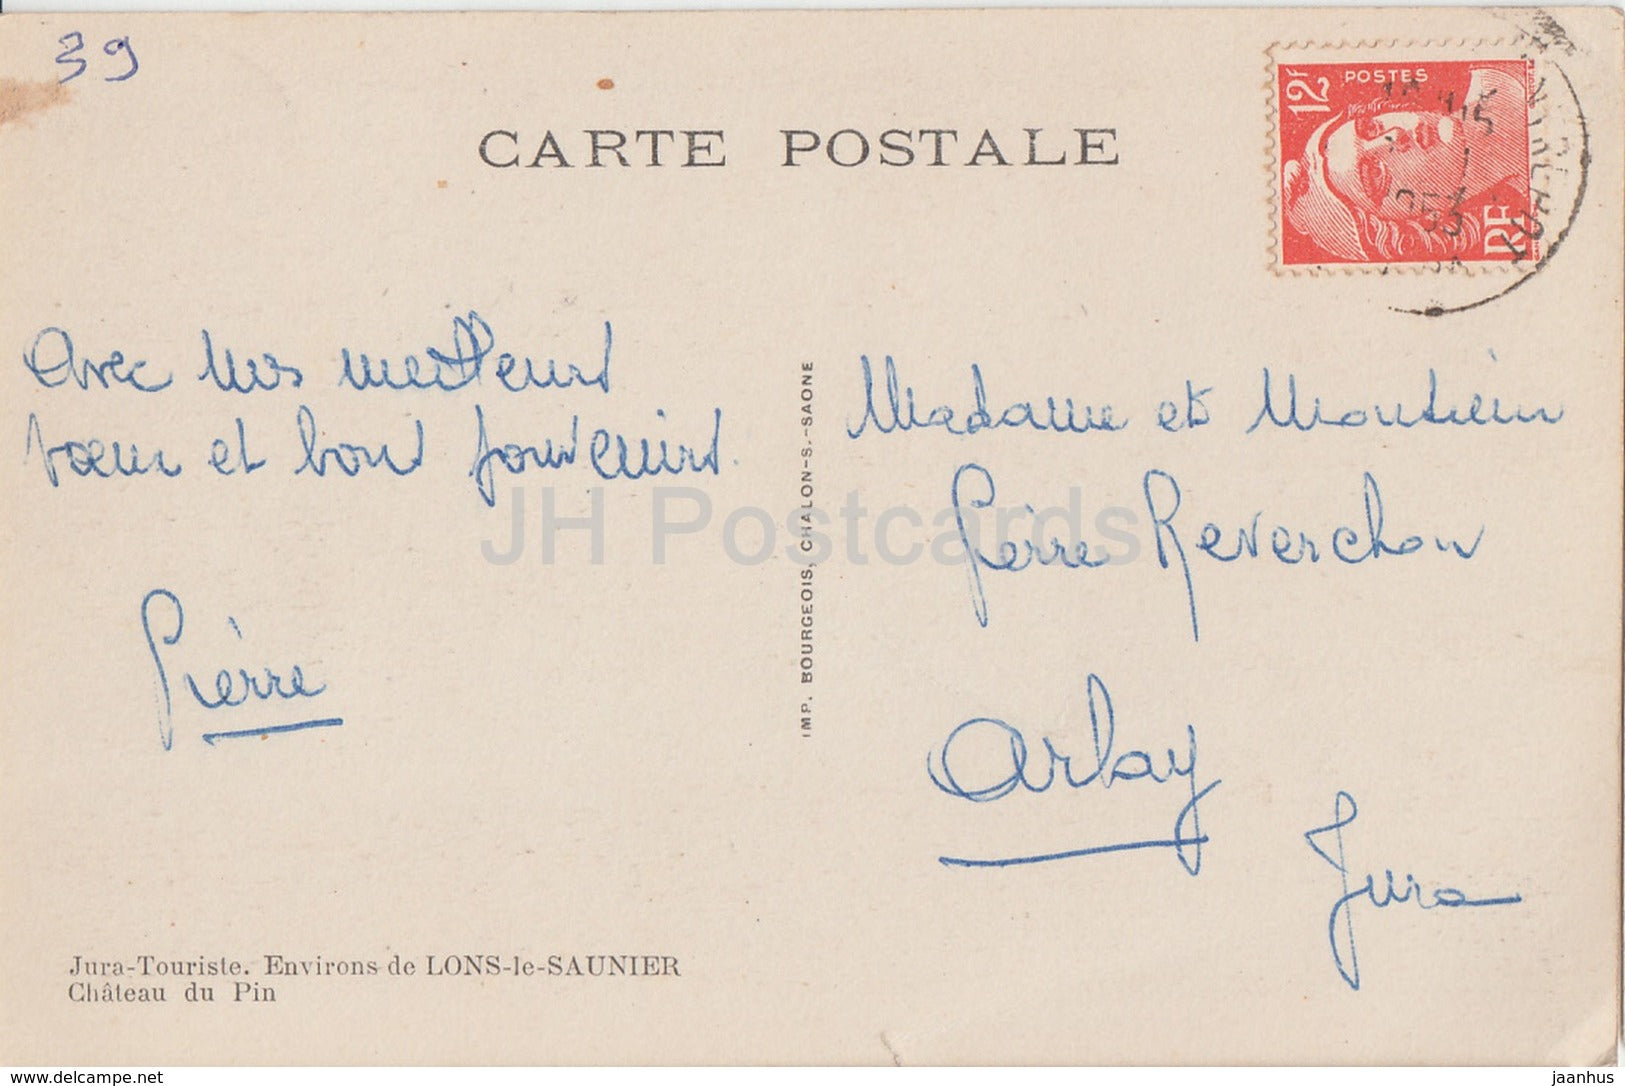 39
CARTE POSTALE
12F
POSTES
RF
Avec mes meilleurs
vœux et bons souvenirs.
Pierre
IMP. BOURGEOIS, CHALON-S.-SAONE
Madame et Monsieur
Pierre Reverchon
Arlay
Jura
JH Postcards
Jura-Touriste. Environs de LONS-le-SAUNIER
Château du Pin
delcampe.net
jaanhus